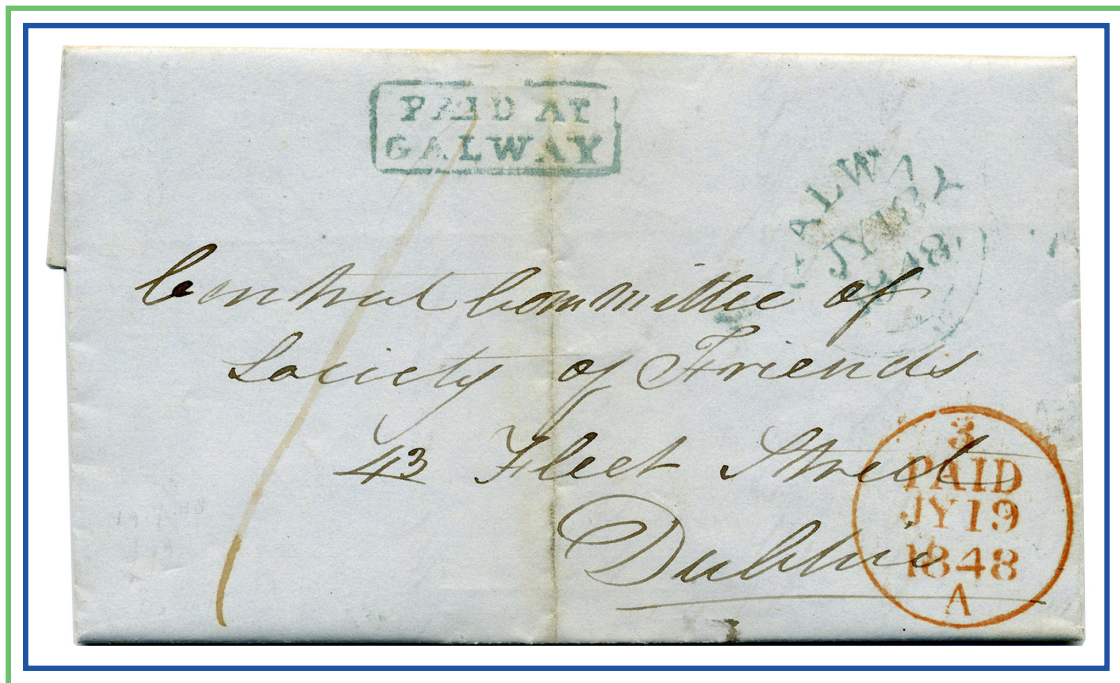 PAID AT
GALWAY
GALWAY
JY 18
1848
Central Committee of
Society of Friends
43 Fleet Street
Dublin
3
PAID
JY 19
1848
A